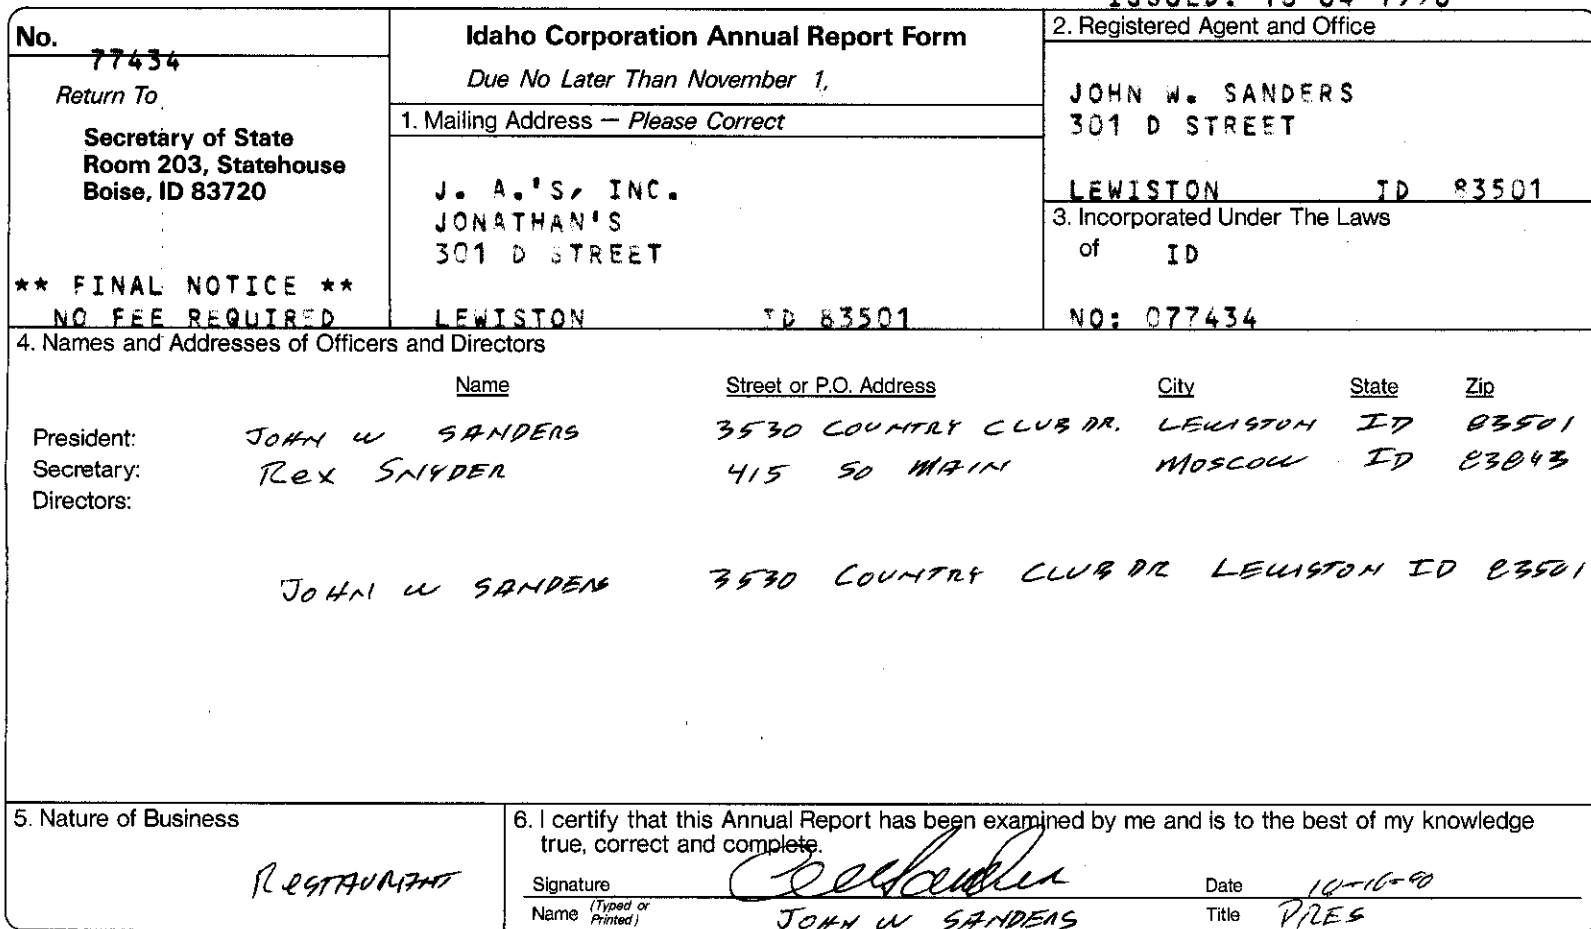 No. 77434
Return To
Secretary of State
Room 203, Statehouse
Boise, ID 83720
** FINAL NOTICE **
NO FEE REQUIRED
Idaho Corporation Annual Report Form
Due No Later Than November 1,
1. Mailing Address — Please Correct
J. A.'S, INC.
JONATHAN'S
301 D STREET
LEWISTON ID 83501
2. Registered Agent and Office
JOHN W. SANDERS
301 D STREET
LEWISTON ID 83501
3. Incorporated Under The Laws
of ID
NO: 077434
4. Names and Addresses of Officers and Directors
Name Street or P.O. Address City State Zip
President: JOHN W SANDERS 3530 COUNTRY CLUB DR. LEWISTON ID 83501
Secretary: Rex SNYDER 415 SO MAIN MOSCOW ID 83843
Directors:
JOHN W SANDERS 3530 COUNTRY CLUB DR LEWISTON ID 83501
5. Nature of Business
RESTAURANT
6. I certify that this Annual Report has been examined by me and is to the best of my knowledge
true, correct and complete.
Signature Date 10-16-90
Name (Typed or Printed) JOHN W SANDERS Title PRES